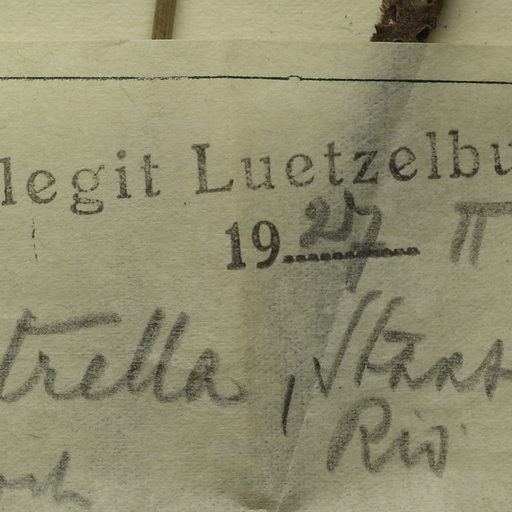 legit Luetzelbu
1927 II
trella, Staat
Rio